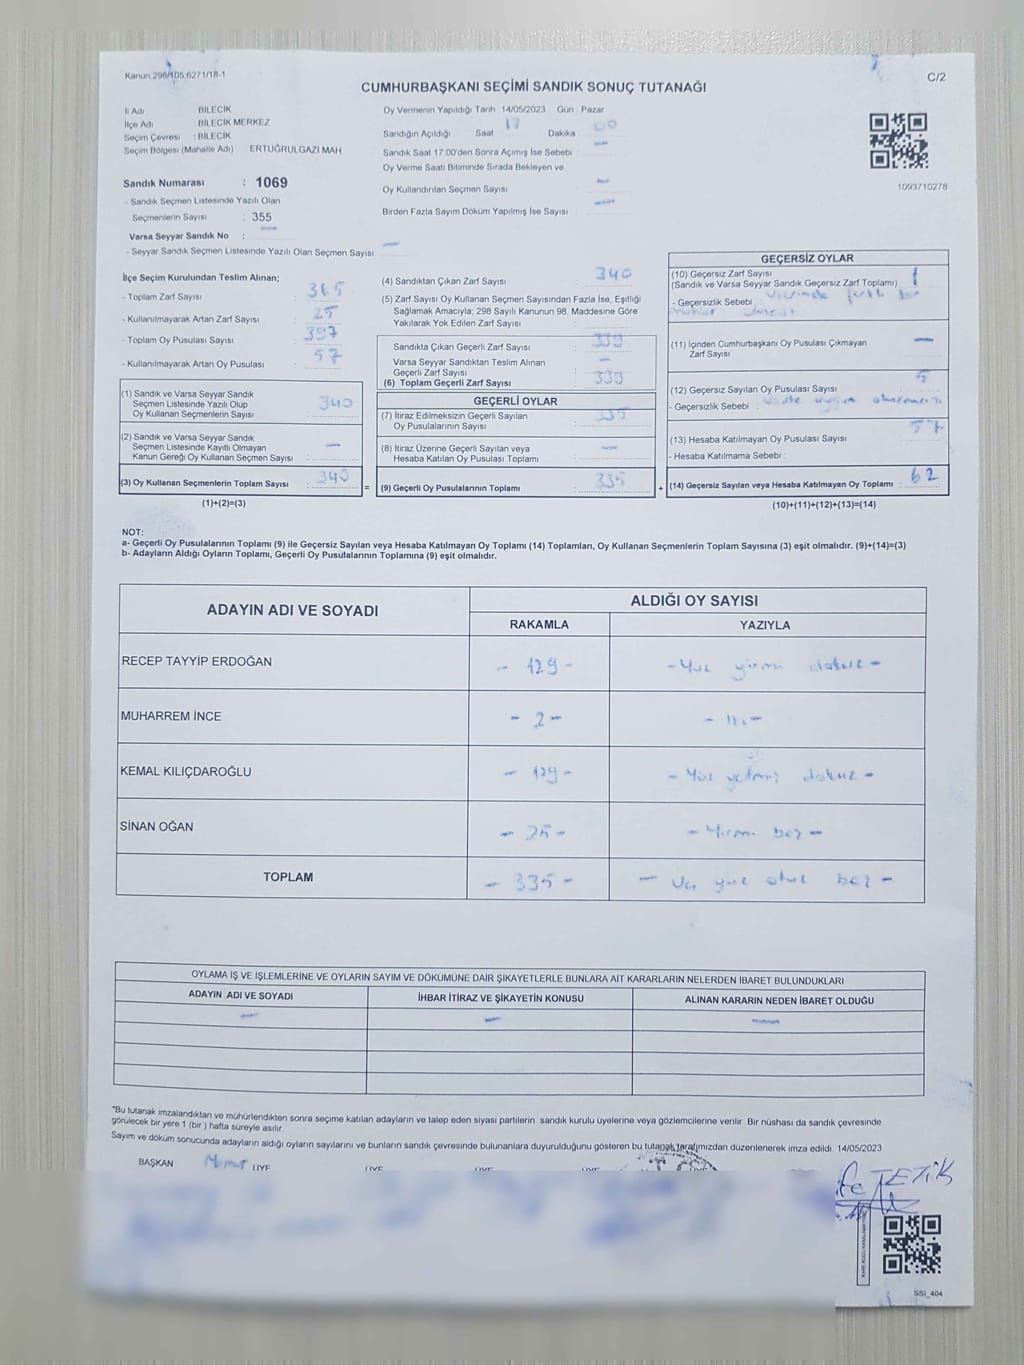 Kanun 298/105,6271/18-1
C/2
CUMHURBAŞKANI SEÇİMİ SANDIK SONUÇ TUTANAĞI
İl Adı BİLECİK
İlçe Adı BİLECİK MERKEZ
Seçim Çevresi : BİLECİK
Seçim Bölgesi (Mahalle Adı) ERTUĞRULGAZİ MAH
Sandık Numarası : 1069
- Sandık Seçmen Listesinde Yazılı Olan
Seçmenlerin Sayısı : 355
Varsa Seyyar Sandık No : —
- Seyyar Sandık Seçmen Listesinde Yazılı Olan Seçmen Sayısı: —
Oy Vermenin Yapıldığı Tarih 14/05/2023 Gün Pazar
Sandığın Açıldığı Saat 17 Dakika 00
Sandık Saat 17:00'den Sonra Açımış İse Sebebi : —
Oy Verme Saati Bitiminde Sırada Bekleyen ve
Oy Kullandırılan Seçmen Sayısı —
Birden Fazla Sayım Döküm Yapılmış İse Sayısı —
1093710278
İlçe Seçim Kurulundan Teslim Alınan;
- Toplam Zarf Sayısı : 365
- Kullanılmayarak Artan Zarf Sayısı : 25
- Toplam Oy Pusulası Sayısı : 397
- Kullanılmayarak Artan Oy Pusulası : 57
(1) Sandık ve Varsa Seyyar Sandık
Seçmen Listesinde Yazılı Olup
Oy Kullanan Seçmenlerin Sayısı : 340
(2) Sandık ve Varsa Seyyar Sandık
Seçmen Listesinde Kayıtlı Olmayan
Kanun Gereği Oy Kullanan Seçmen Sayısı : —
(3) Oy Kullanan Seçmenlerin Toplam Sayısı : 340
(1)+(2)=(3)
(4) Sandıktan Çıkan Zarf Sayısı : 340
(5) Zarf Sayısı Oy Kullanan Seçmen Sayısından Fazla İse, Eşitliği
Sağlamak Amacıyla; 298 Sayılı Kanunun 98. Maddesine Göre
Yakılarak Yok Edilen Zarf Sayısı :
Sandıkta Çıkan Geçerli Zarf Sayısı : 339
Varsa Seyyar Sandıktan Teslim Alınan
Geçerli Zarf Sayısı : —
(6) Toplam Geçerli Zarf Sayısı : 339
GEÇERLİ OYLAR
(7) İtiraz Edilmeksizin Geçerli Sayılan
Oy Pusulalarının Sayısı : 335
(8) İtiraz Üzerine Geçerli Sayılan veya
Hesaba Katılan Oy Pusulası Toplamı : —
= (9) Geçerli Oy Pusulalarının Toplamı : 335
GEÇERSİZ OYLAR
(10) Geçersiz Zarf Sayısı 1
(Sandık ve Varsa Seyyar Sandık Geçersiz Zarf Toplamı) :
- Geçersizlik Sebebi : Üzerinde farklı bir
mühür olması
(11) İçinden Cumhurbaşkanı Oy Pusulası Çıkmayan —
Zarf Sayısı
(12) Geçersiz Sayılan Oy Pusulası Sayısı : 5
- Geçersizlik Sebebi : uygun olmadığı
(13) Hesaba Katılmayan Oy Pusulası Sayısı : 57
- Hesaba Katılmama Sebebi :
+ (14) Geçersiz Sayılan veya Hesaba Katılmayan Oy Toplamı : 62
(10)+(11)+(12)+(13)=(14)
NOT:
a- Geçerli Oy Pusulalarının Toplamı (9) ile Geçersiz Sayılan veya Hesaba Katılmayan Oy Toplamı (14) Toplamları, Oy Kullanan Seçmenlerin Toplam Sayısına (3) eşit olmalıdır. (9)+(14)=(3)
b- Adayların Aldığı Oyların Toplamı, Geçerli Oy Pusulalarının Toplamına (9) eşit olmalıdır.
ADAYIN ADI VE SOYADI
ALDIĞI OY SAYISI
RAKAMLA YAZIYLA
RECEP TAYYİP ERDOĞAN - 129 - - Yüz yirmi dokuz -
MUHARREM İNCE - 2 - - İki -
KEMAL KILIÇDAROĞLU - 179 - - Yüz yetmiş dokuz -
SİNAN OĞAN - 25 - - Yirmi beş -
TOPLAM - 335 - - Üç yüz otuz beş -
OYLAMA İŞ VE İŞLEMLERİNE VE OYLARIN SAYIM VE DÖKÜMÜNE DAİR ŞİKAYETLERLE BUNLARA AİT KARARLARIN NELERDEN İBARET BULUNDUKLARI
ADAYIN ADI VE SOYADI İHBAR İTİRAZ VE ŞİKAYETİN KONUSU ALINAN KARARIN NEDEN İBARET OLDUĞU
— — —
*Bu tutanak imzalandıktan ve mühürlendikten sonra seçime katılan adayların ve talep eden siyasi partilerin sandık kurulu üyelerine veya gözlemcilerine verilir. Bir nüshası da sandık çevresinde
görülecek bir yere 1 (bir) hafta süreyle asılır.
Sayım ve döküm sonucunda adayların aldığı oyların sayılarını ve bunların sandık çevresinde bulunanlara duyurulduğunu gösteren bu tutanak tarafımızdan düzenlenerek imza edildi 14/05/2023
BAŞKAN ÜYE ÜYE ÜYE ÜYE
TETİK
SSI_404